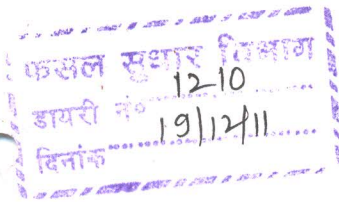 फसल सुधार विभाग
डायरी नं० 1210
दिनांक 19/12/11